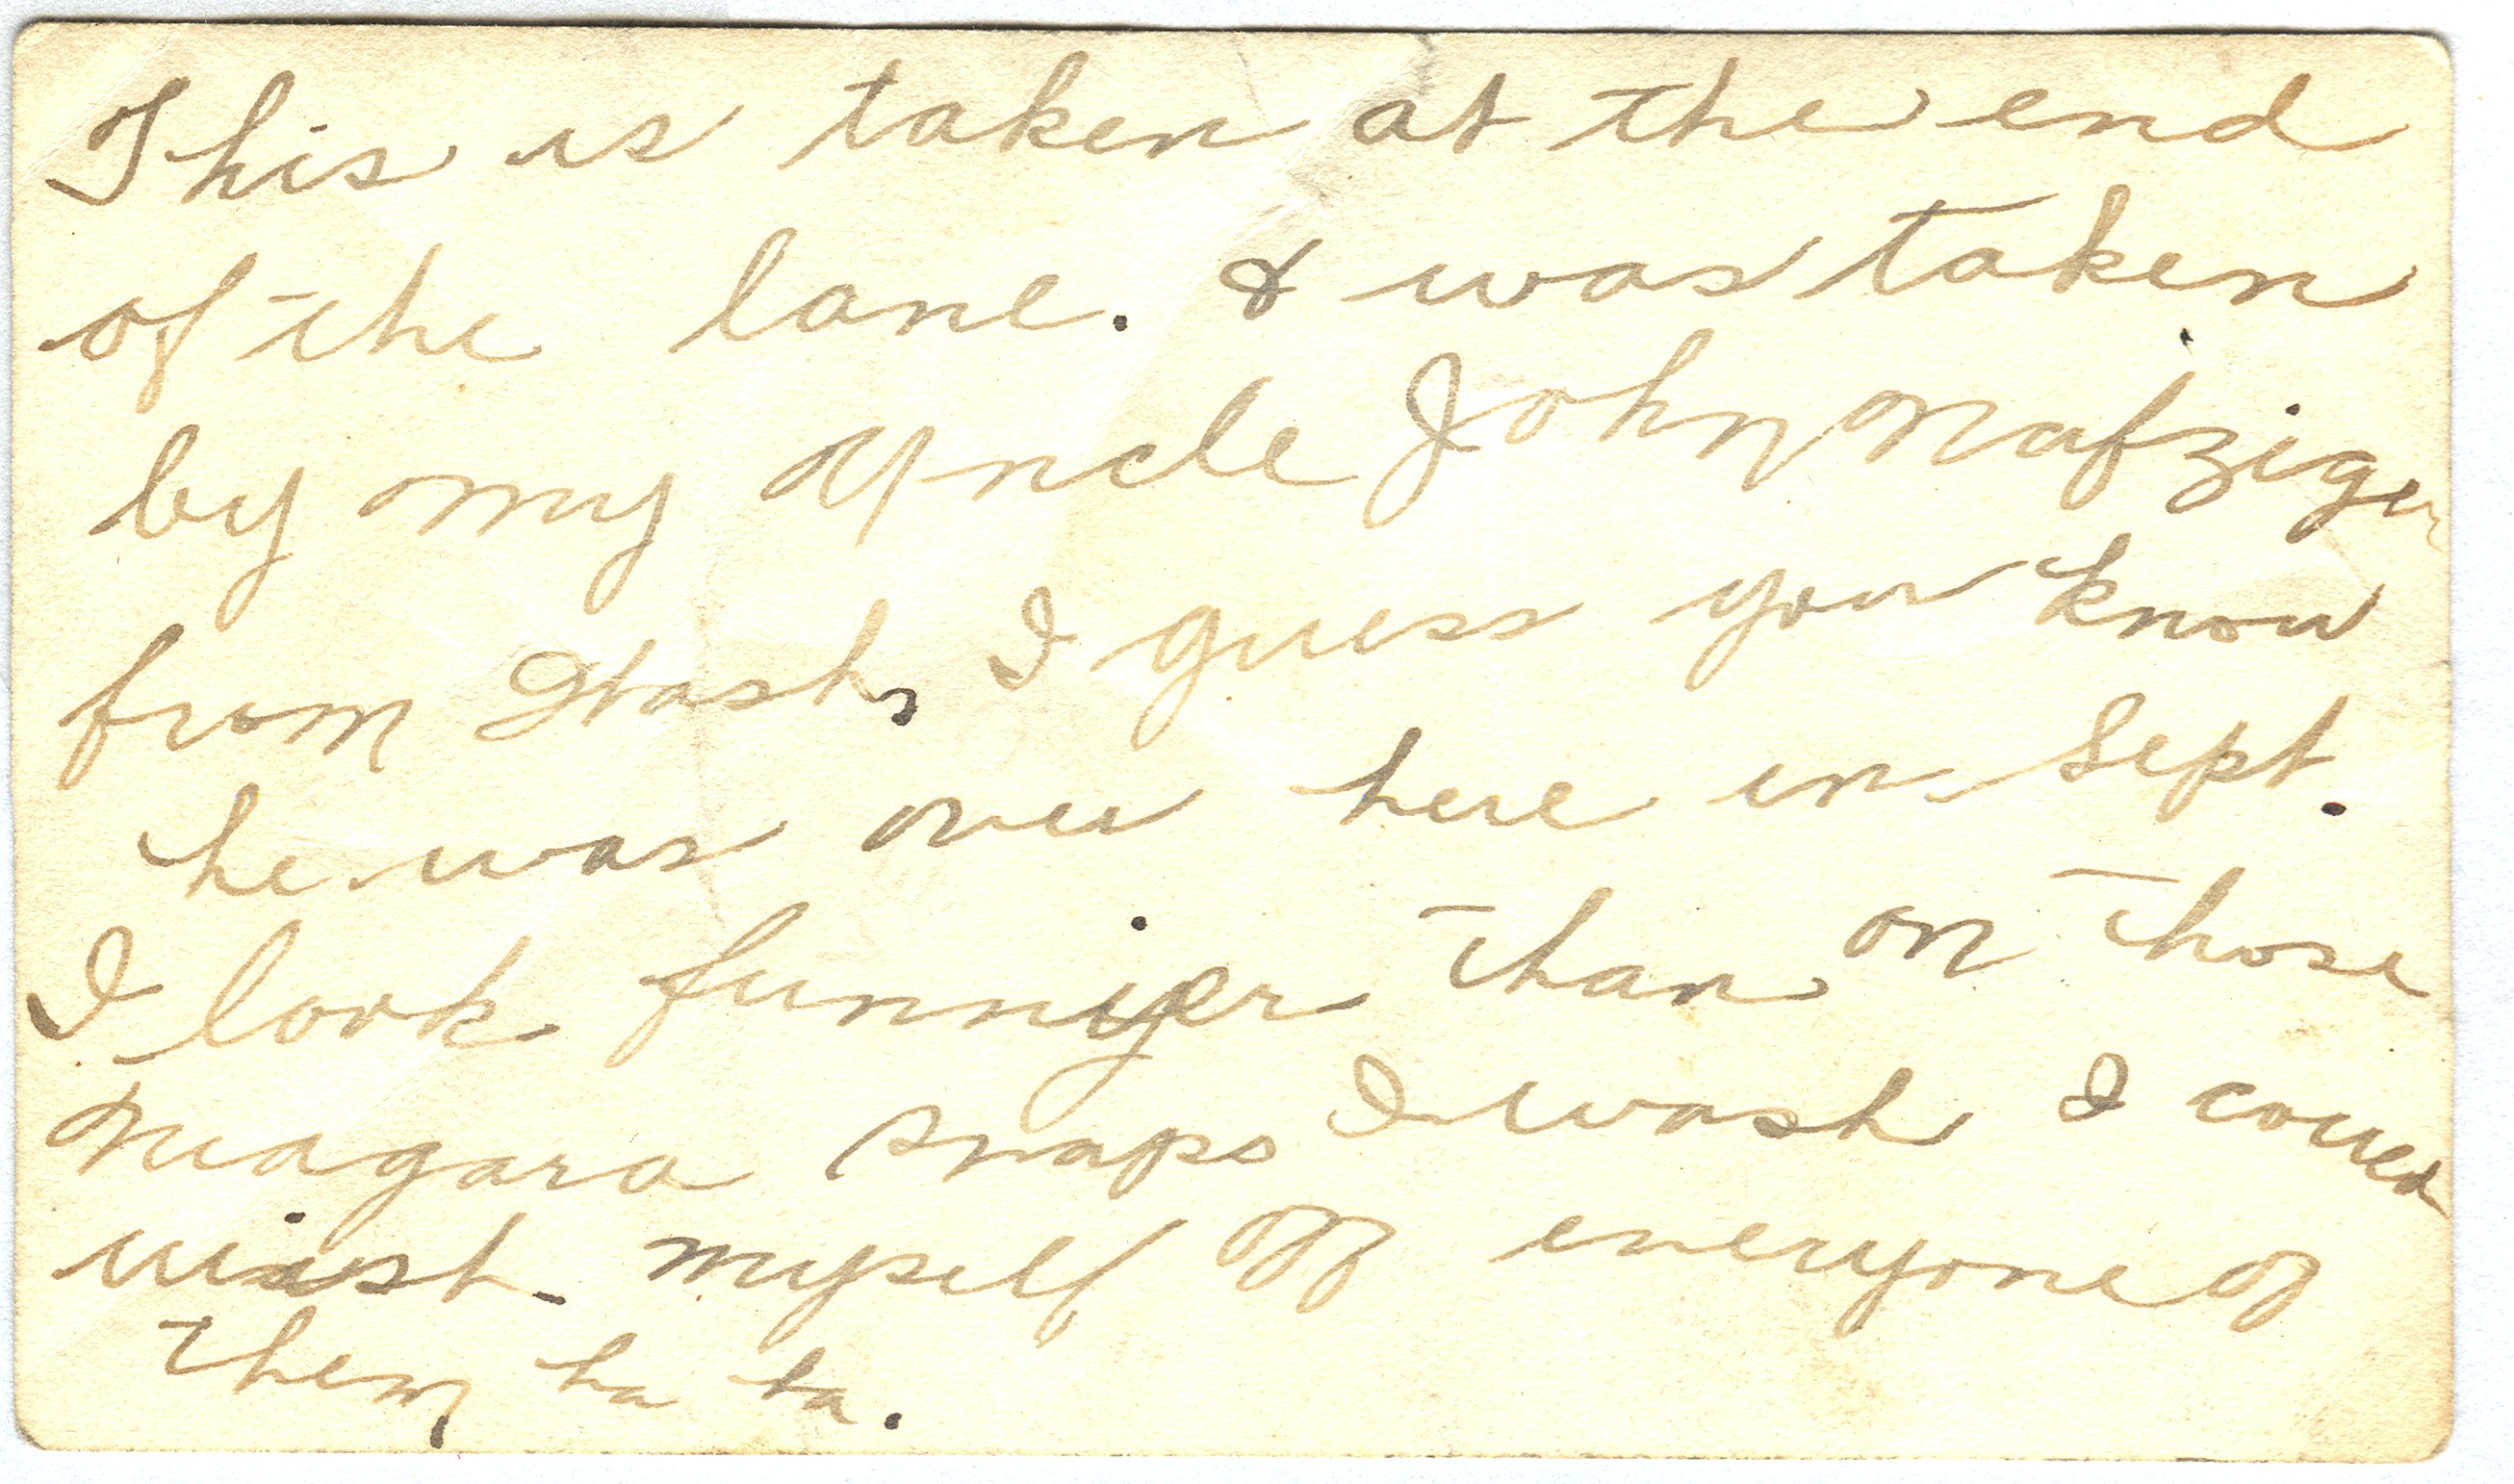 This is taken at the end
of the lane. & was taken
by my Uncle John Nafziger
from Wash, I guess you know
he was over here in Sept.
I look funnyer than on those
Niagara snaps I wash I could
wish myself off everyone of
them ha ha.